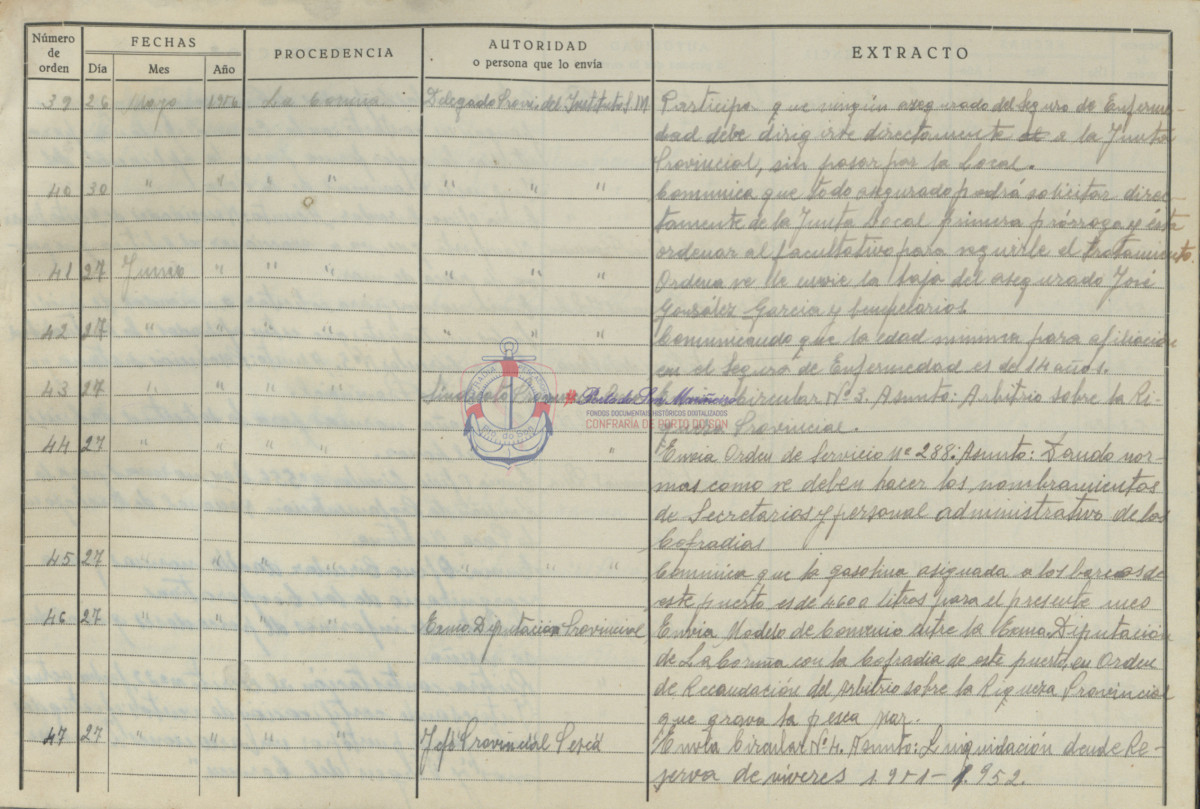 Número de orden FECHAS PROCEDENCIA AUTORIDAD o persona que lo envía EXTRACTO
Día Mes Año
39 26 Mayo 1956 La Coruña Delegado Provi. del Instituto S. M. Participa que ningún asegurado del Seguro de Enferme-
dad debe dirigirse directamente a la Junta
Provincial, sin pasar por la Local.
40 30 " " " " " " Comunica que todo asegurado podrá solicitar direc-
tamente de la Junta Local primera prórroga y ésta
ordenar al facultativo para seguirle el tratamiento.
41 27 Junio " " " " " " Ordena se le envie la baja del asegurado José
González Garcia y beneficiarios.
42 27 " " " " " " Comunicando que la edad minima para afiliación
en el Seguro de Enfermedad es de 14 años.
43 27 " " " " Sindicato Provincial Circular Nº 3. Asunto: Arbitrio sobre la Ri-
queza Provincial.
44 27 " " " " " Envia Orden de Servicio nº 288: Asunto: Dando nor-
mas como se deben hacer los nombramientos
de Secretarios y personal administrativo de las
Cofradias
45 27 " " " " " " " Comunica que la gasolina asignada a los barcos de
este puerto es de 4600 litros para el presente mes
46 27 " " " " Exma Diputación Provincial Envia Modelo de Convenio entre la Exma. Diputación
de La Coruña con la Cofradia de este puerto, en Orden
de Recaudación del Arbitrio sobre la Riqueza Provincial
que grava la pesca Mar.
47 27 " " " " Jefe Provincial Pesca Envia Circular Nº 4. Asunto: Liquidación de Re-
serva de viveres 1.951-1.952.
Porto do Son Mariñeiro
FONDOS DOCUMENTAIS HISTÓRICOS DIXITALIZADOS
CONFRARÍA DE PORTO DO SON